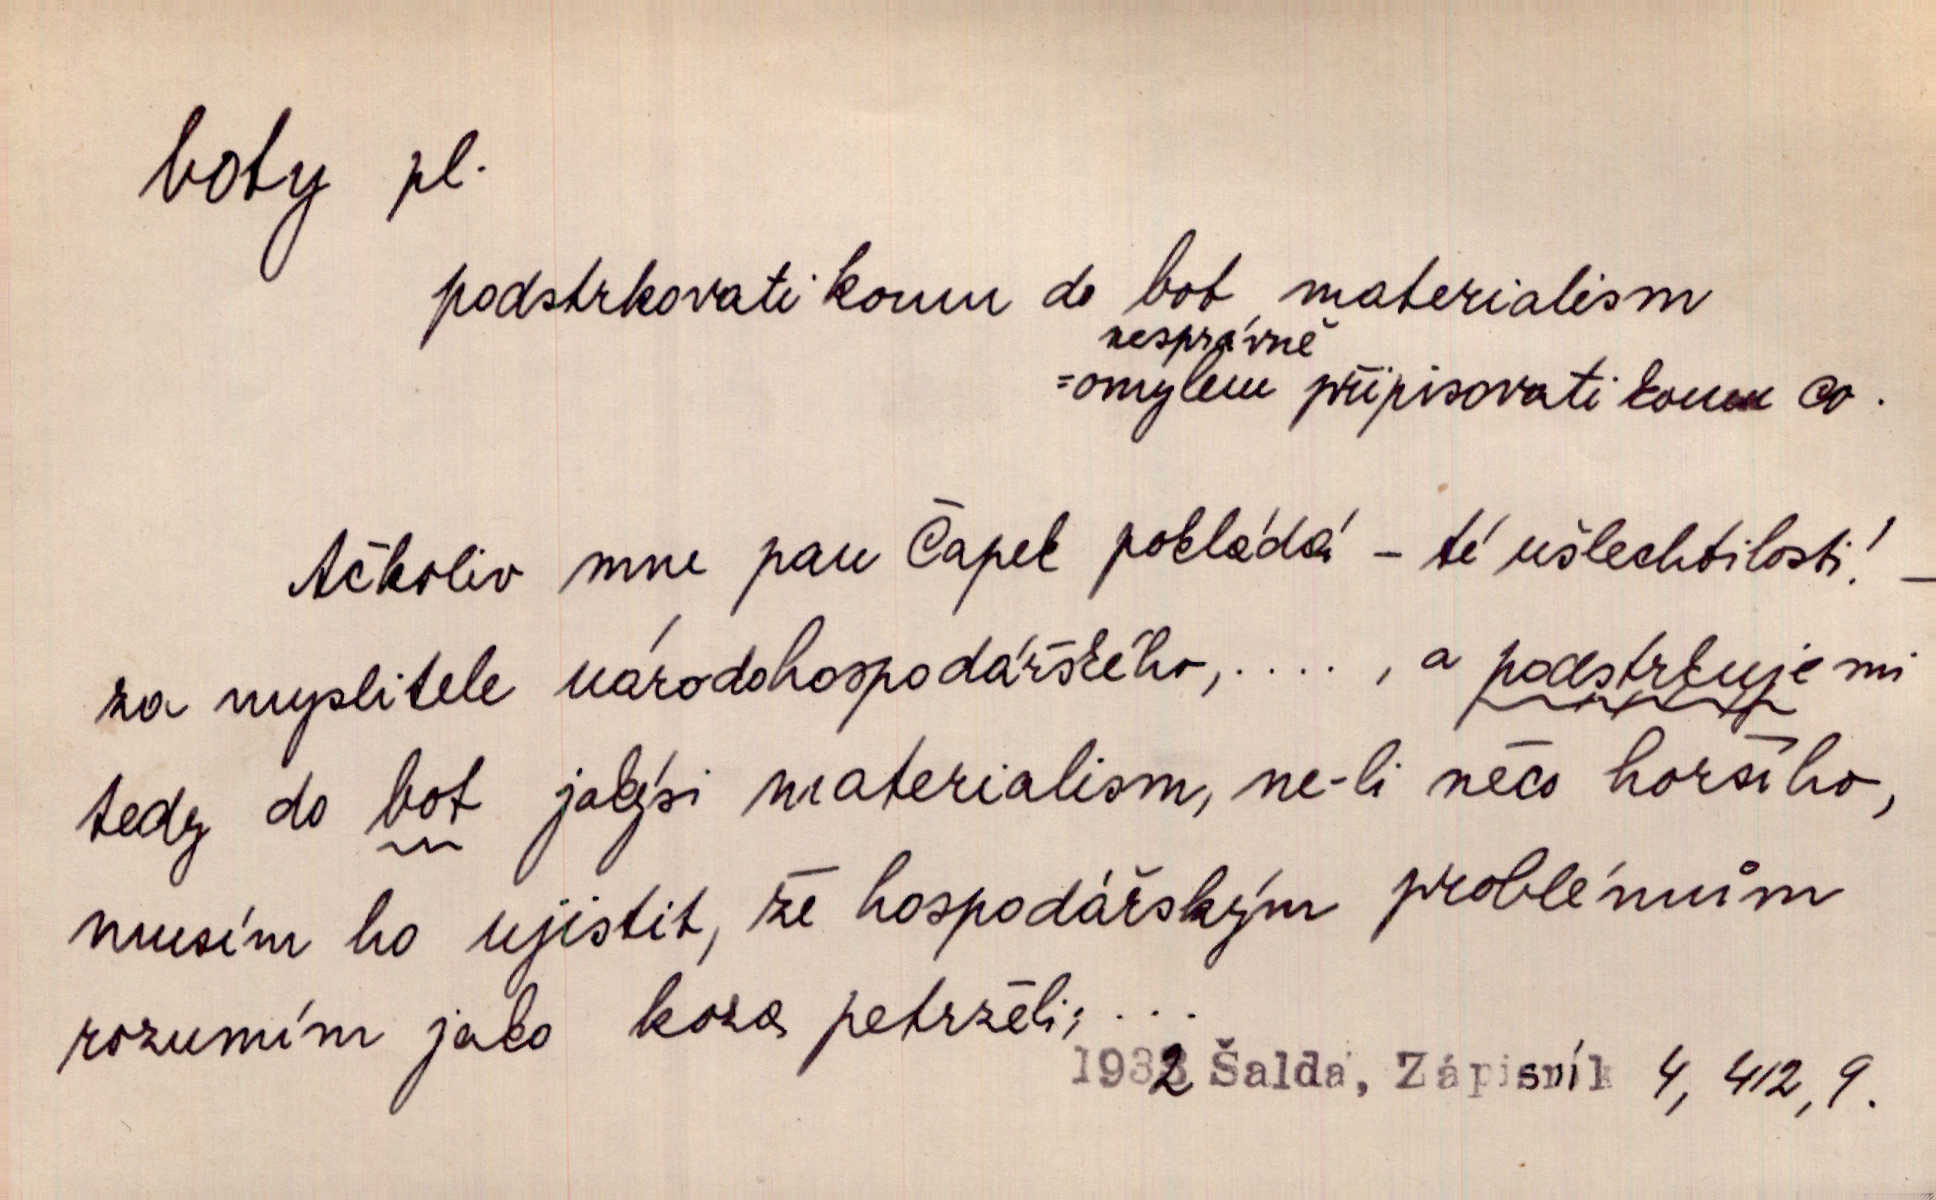 boty pl.
podstrkovati komu do bot materialism
nesprávně
=omylem připisovati komu co.
Ačkoliv mne pan Čapek pokládá – té ušlechtilosti! –
za myslitele národohospodářského, . . . . , a podstrkuje mi
tedy do bot jakýsi materialism, ne-li něco horšího,
musím ho ujistit, že hospodářským problémům
rozumím jako koza petrželi; . . .
1932 Šalda, Zápisník 4, 412, 9.